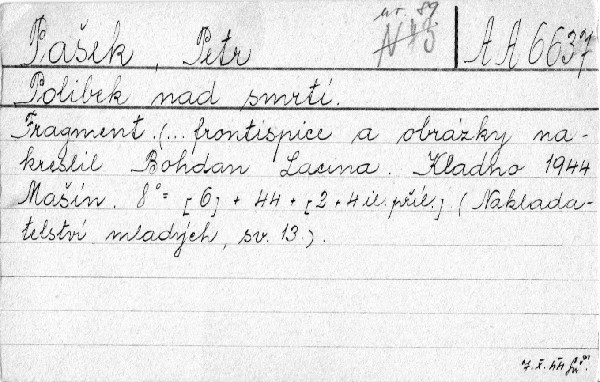 Pašek, Petr
nr. 89
AA 6637
Polibek nad smrtí.
Fragment. (... frontispice a obrázky na-
kreslil Bohdan Lacina. Kladno 1944
Mašín. 8° = [6] + 44 + [2 + 4 il. příl.]. (Naklada-
telství mladých, sv. 13.).
7.X.44